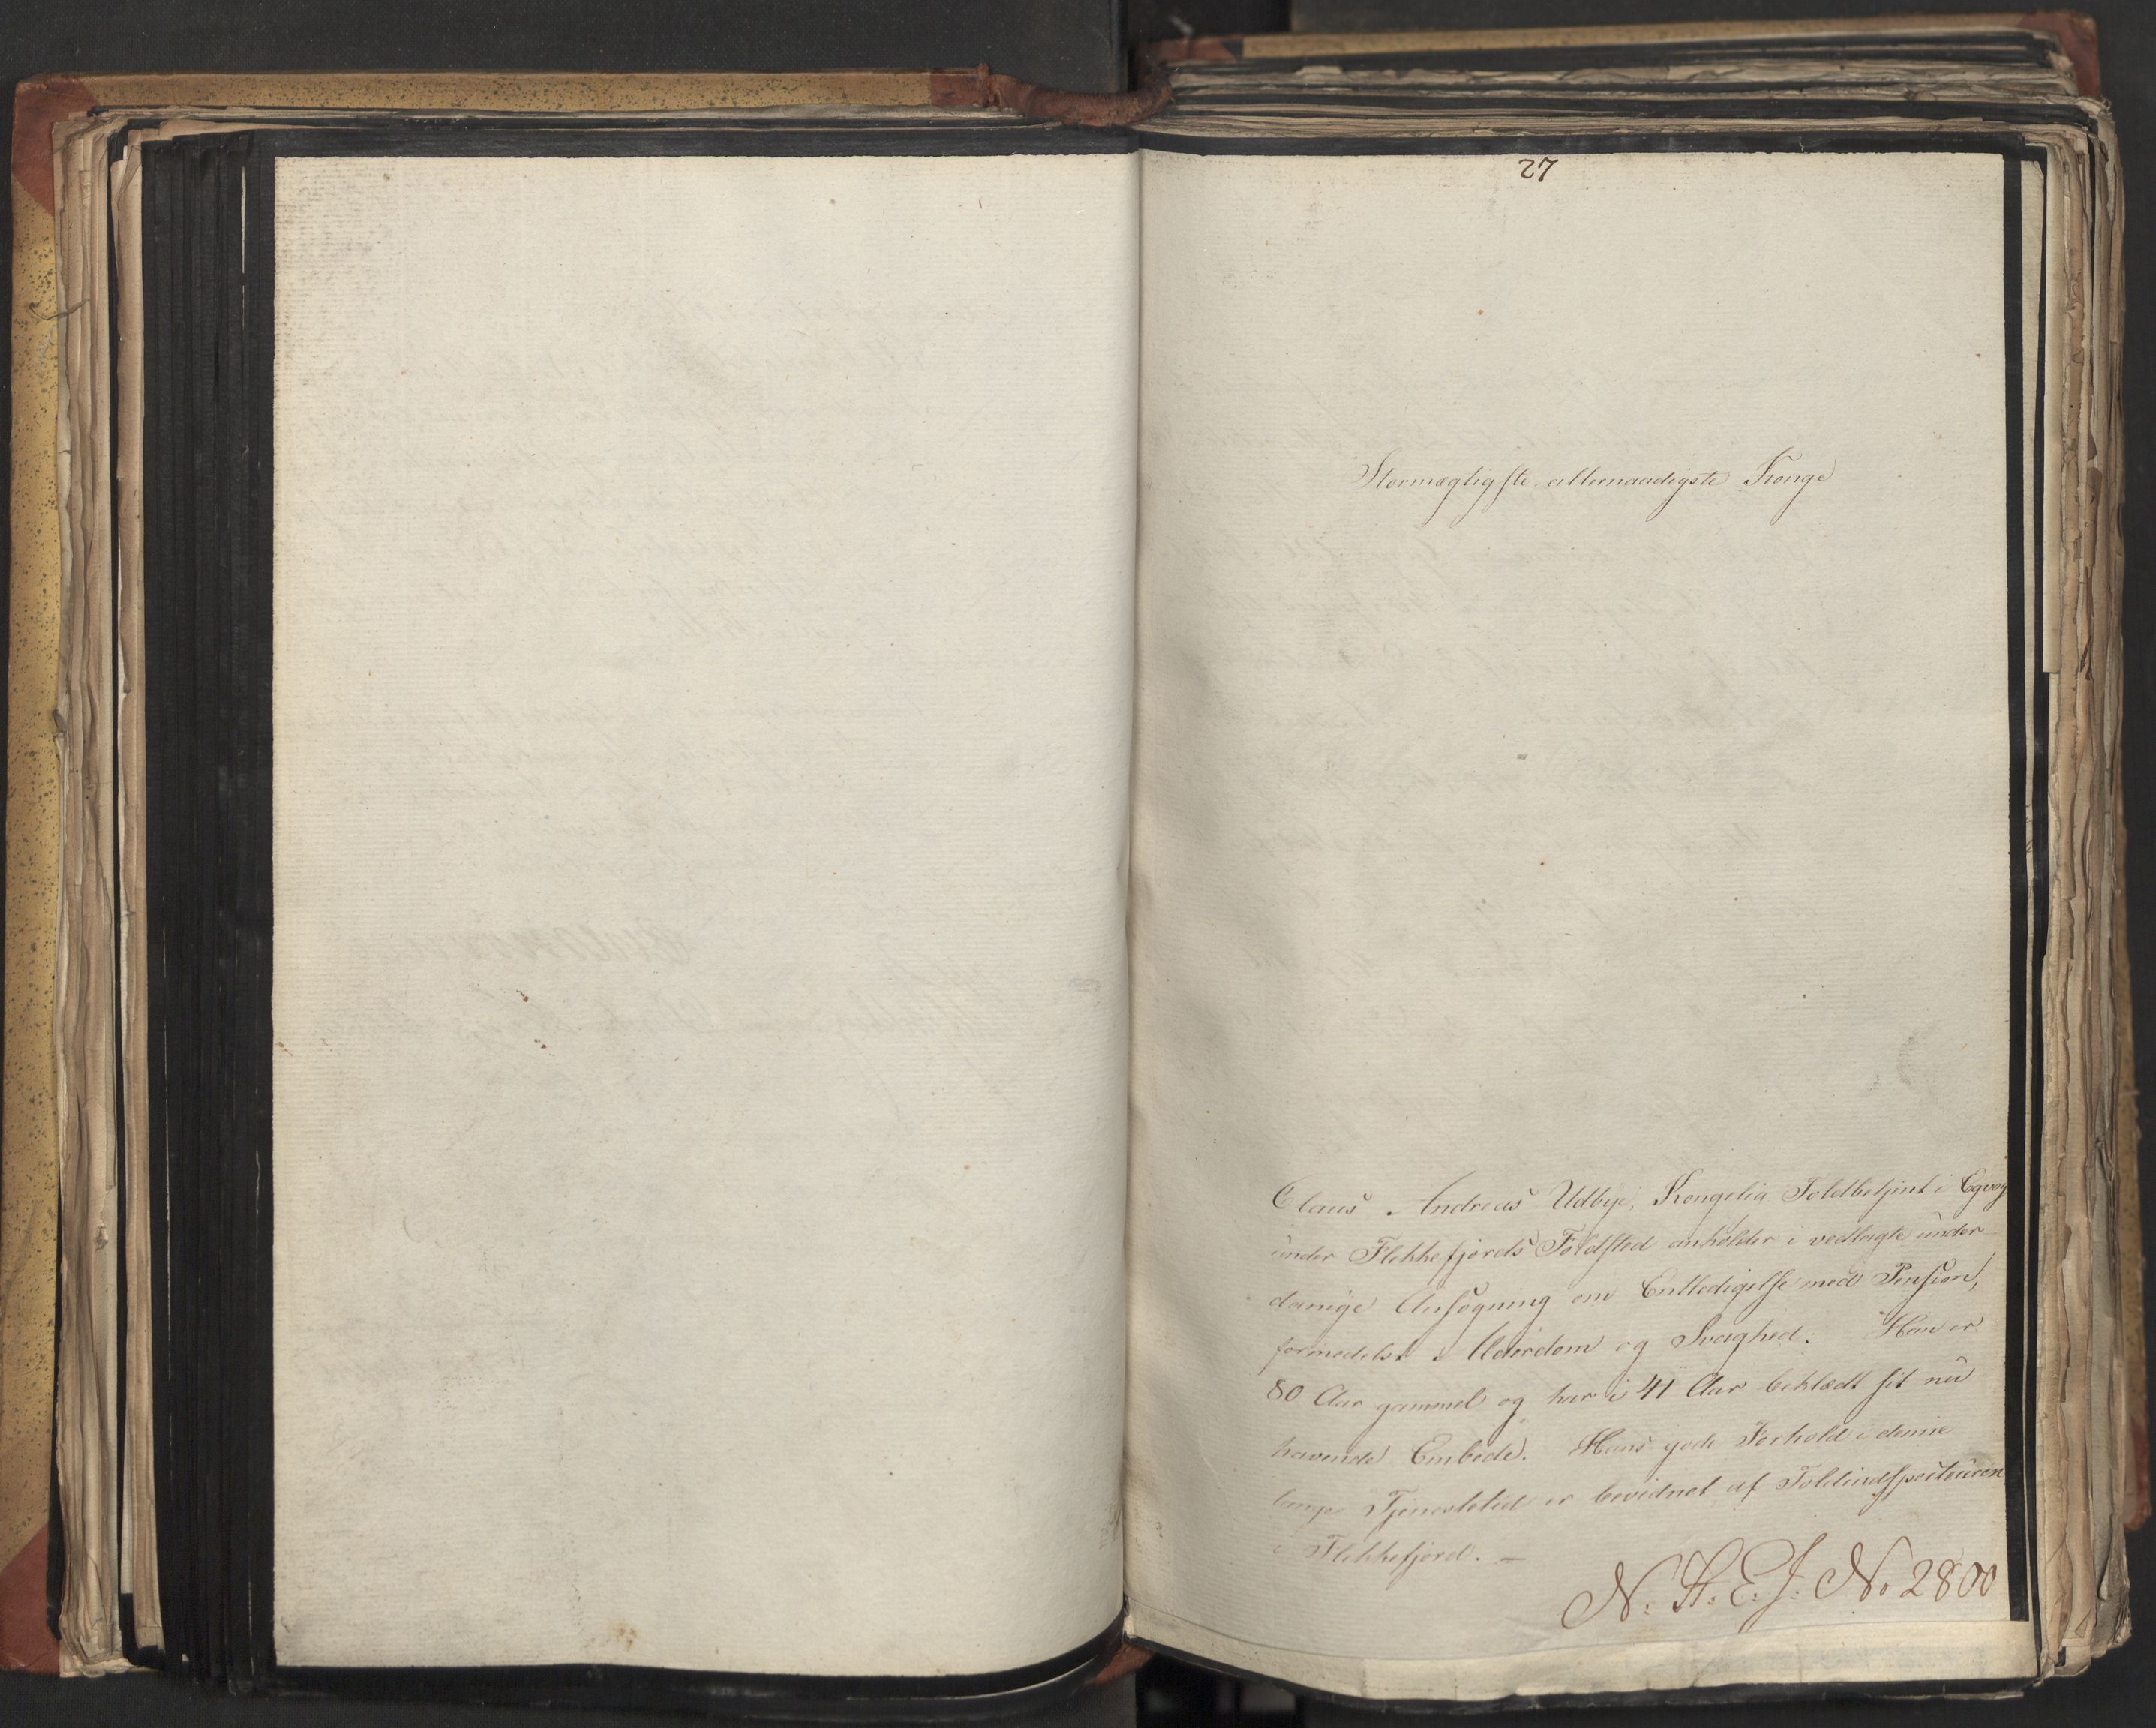 27
Stormægtigste allernaadigste Konge
Claus Andreas Udbye, Kongelig Toldbetjent i Egvog
under Flekkefjords Toldsted anholder i vedlagte under-
danige Ansøgning om Entledigelse med Pension,
formedelst Alderdom og Svaghed. Han er
80 Aar gammel og har i 41 Aar beklædt sit nu
havende Embede. Hans gode Forhold i denne
lange Tjenestetid er bevidnet af Toldindspecteuren
i Flekkefjord. —
N: H: E: J: No 2800